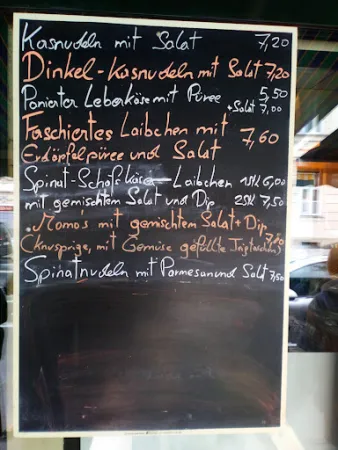 Kasnudeln mit Salat 7,20
Dinkel-Kasnudeln mit Salat 7,20
Panierter Leberkäse mit Püree 5,50
+ Salat 7,00
Faschiertes Laibchen mit 7,60
Erdäpfelpüree und Salat
Spinat-Schafskäse-Laibchen 1Stk 6,00
mit gemischtem Salat und Dip 2Stk 7,50
Momo's mit gemischtem Salat + Dip
(knusprige, mit Gemüse gefüllte Teigtaschen) 7,20
Spinatnudeln mit Parmesan und Salat 7,50